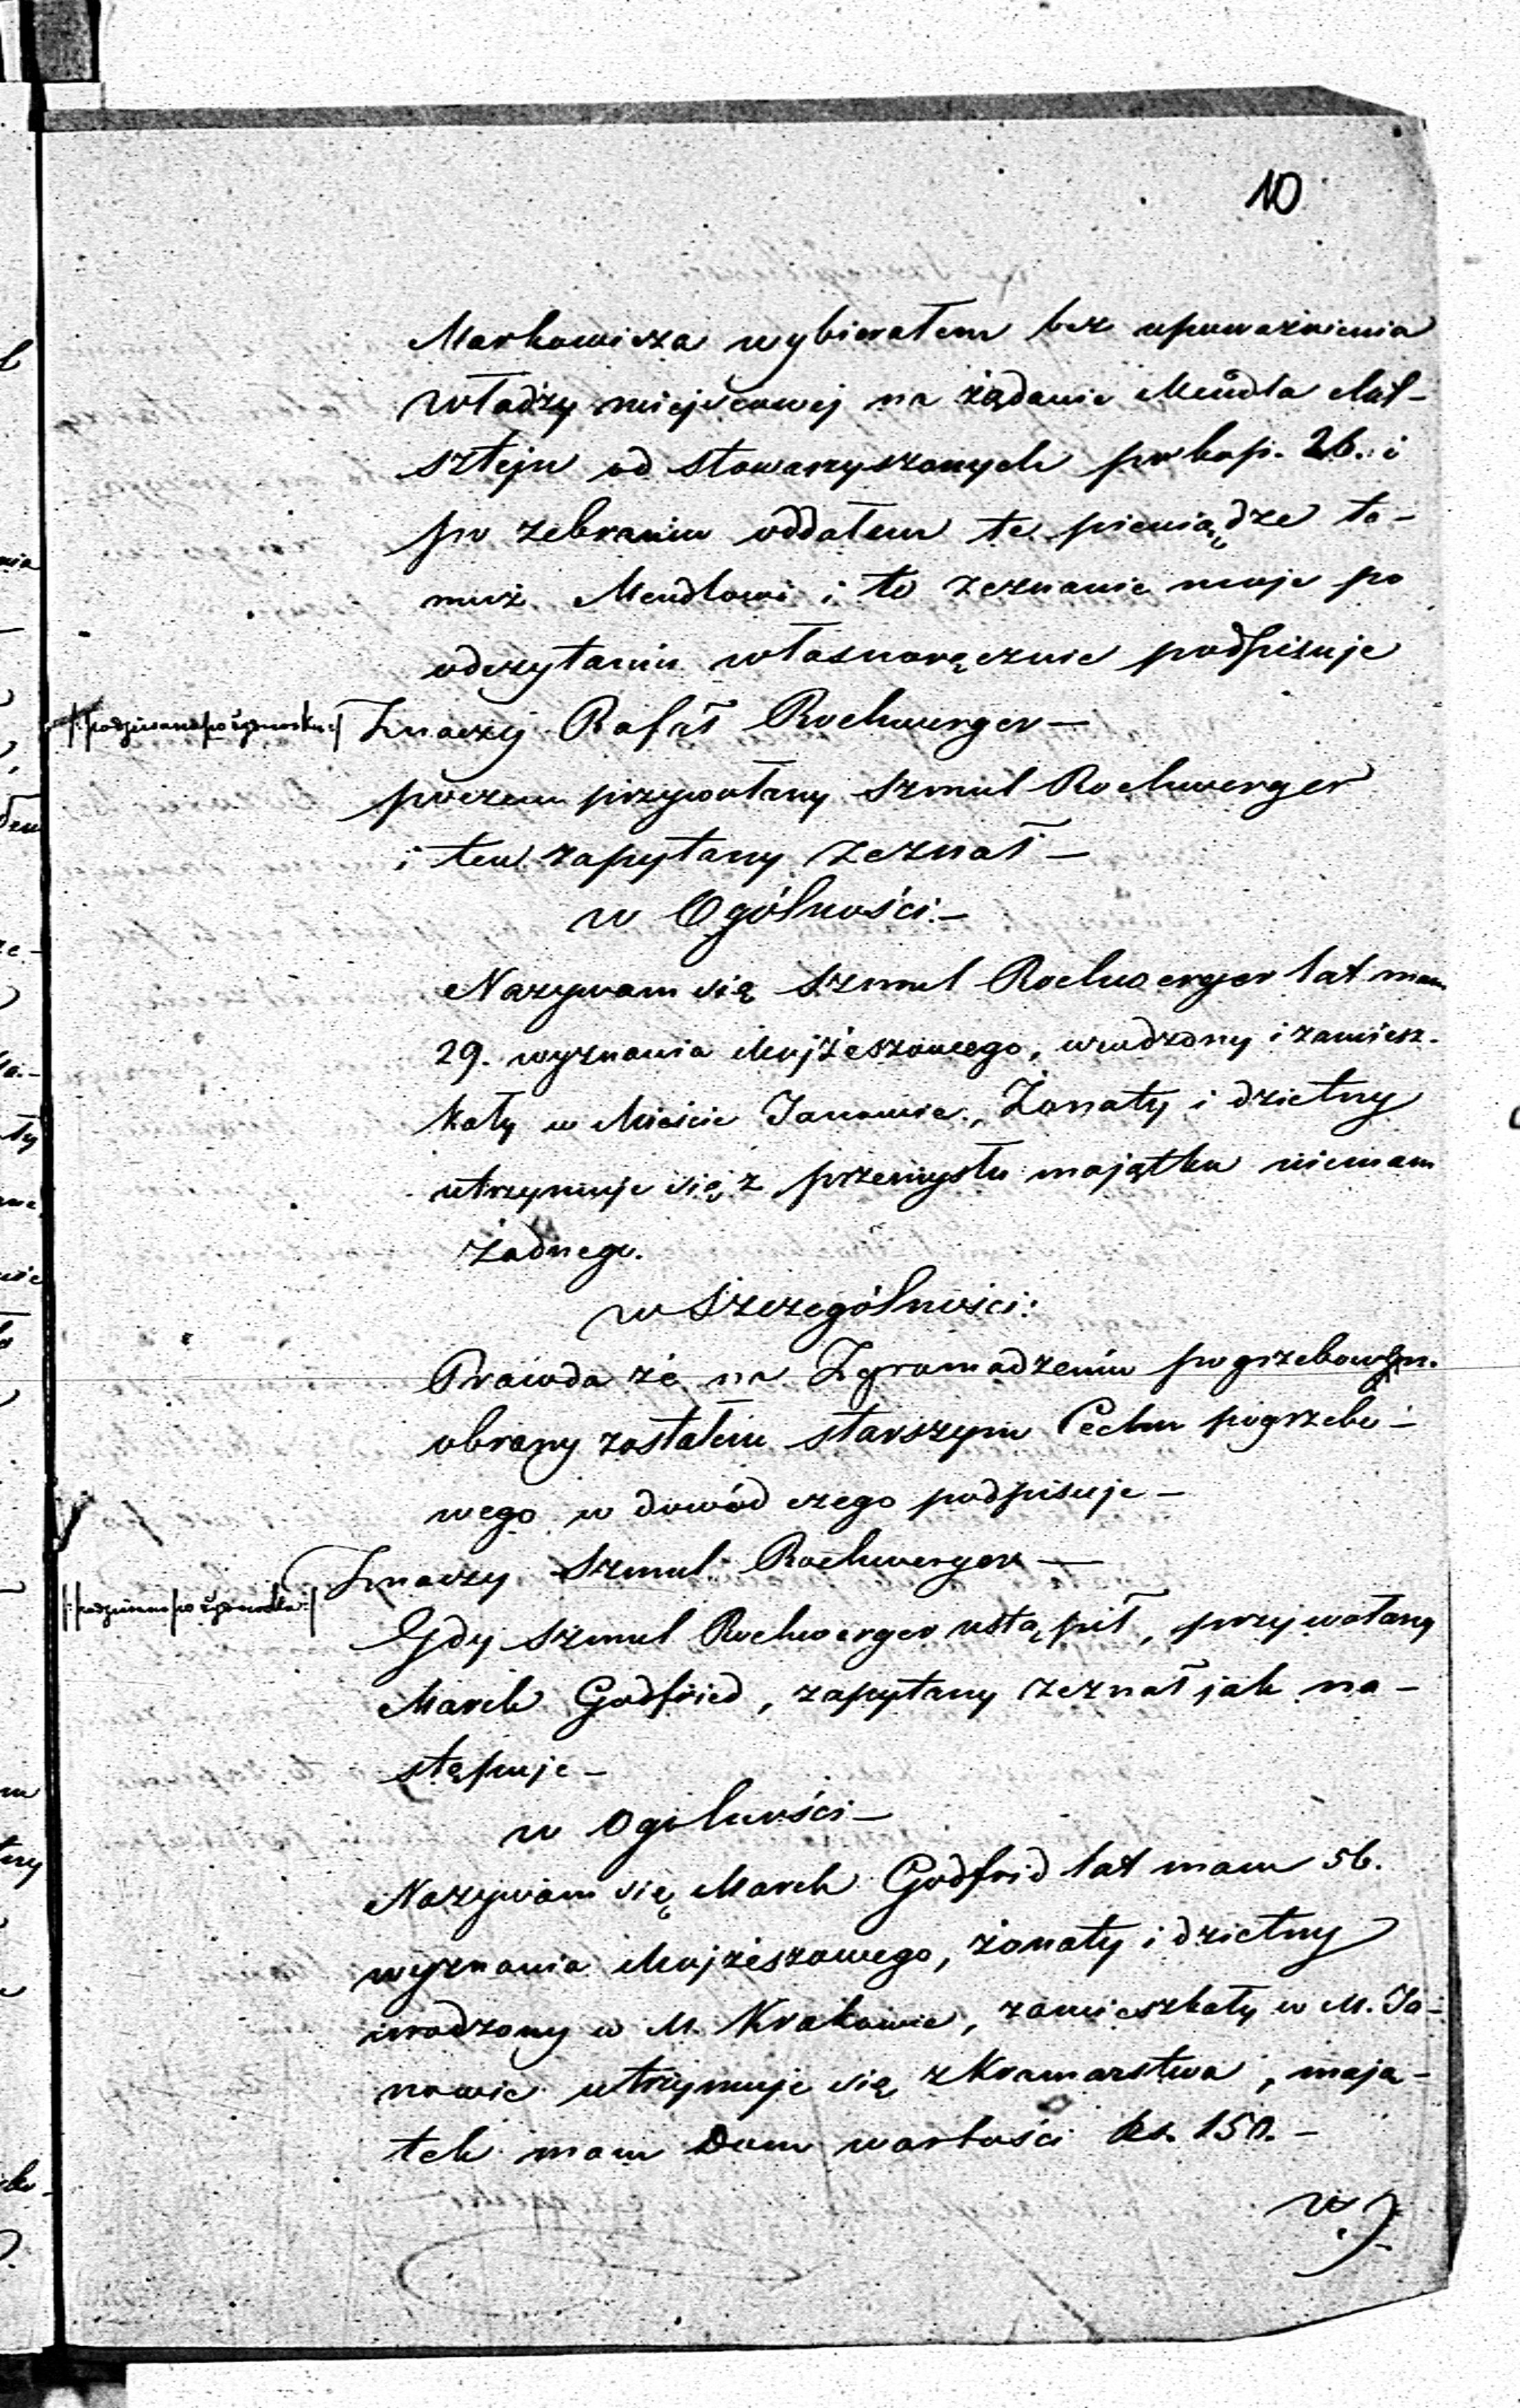 10
Markowicza wybierałem bez upoważnienia
władzy miejscowej na żądanie Mendla Mil-
sztejn od stowarzyszonych po kop. 26. i
po zebraniu oddałem te pieniądze te-
muż Mendlowi i to zeznanie moje po
odczytaniu własnoręcznie podpisuje
/: podpisano po żydowsku :/ Znaczy Rafał Rochwerger —
poczem przywołany Szmul Rochwerger
i ten zapytany zeznał —
w Ogólności. —
Nazywam się Szmul Rochwerger lat mam
29. wyznania Mojżeszowego, urodzony i zamiesz-
kały w Mieście Janowie, Żonaty i dzietny
utrzymuje się z przemysłu majątku niemam
żadnego.
w Szczególności:
Prawda że na Zgromadzeniu pogrzebowym.
obrany zostałem starszym Cechu pogrzebo-
wego w dowód czego podpisuje —
/: podpisano po żydowsku :/ Znaczy Szmul Rochwerger —
Gdy Szmul Rochwerger ustąpił, przywołany
Marek Godfried, zapytany zeznał jak na-
stępuje —
w Ogólności —
Nazywam się Marek Godfrid lat mam 56.
wyznania Mojżeszowego, żonaty i dzietny
urodzony w M. Krakowie, zamieszkały w M. Ja-
nowie utrzymuje się z Kramarstwa, mają-
tek mam Dom wartości Rs. 150. —